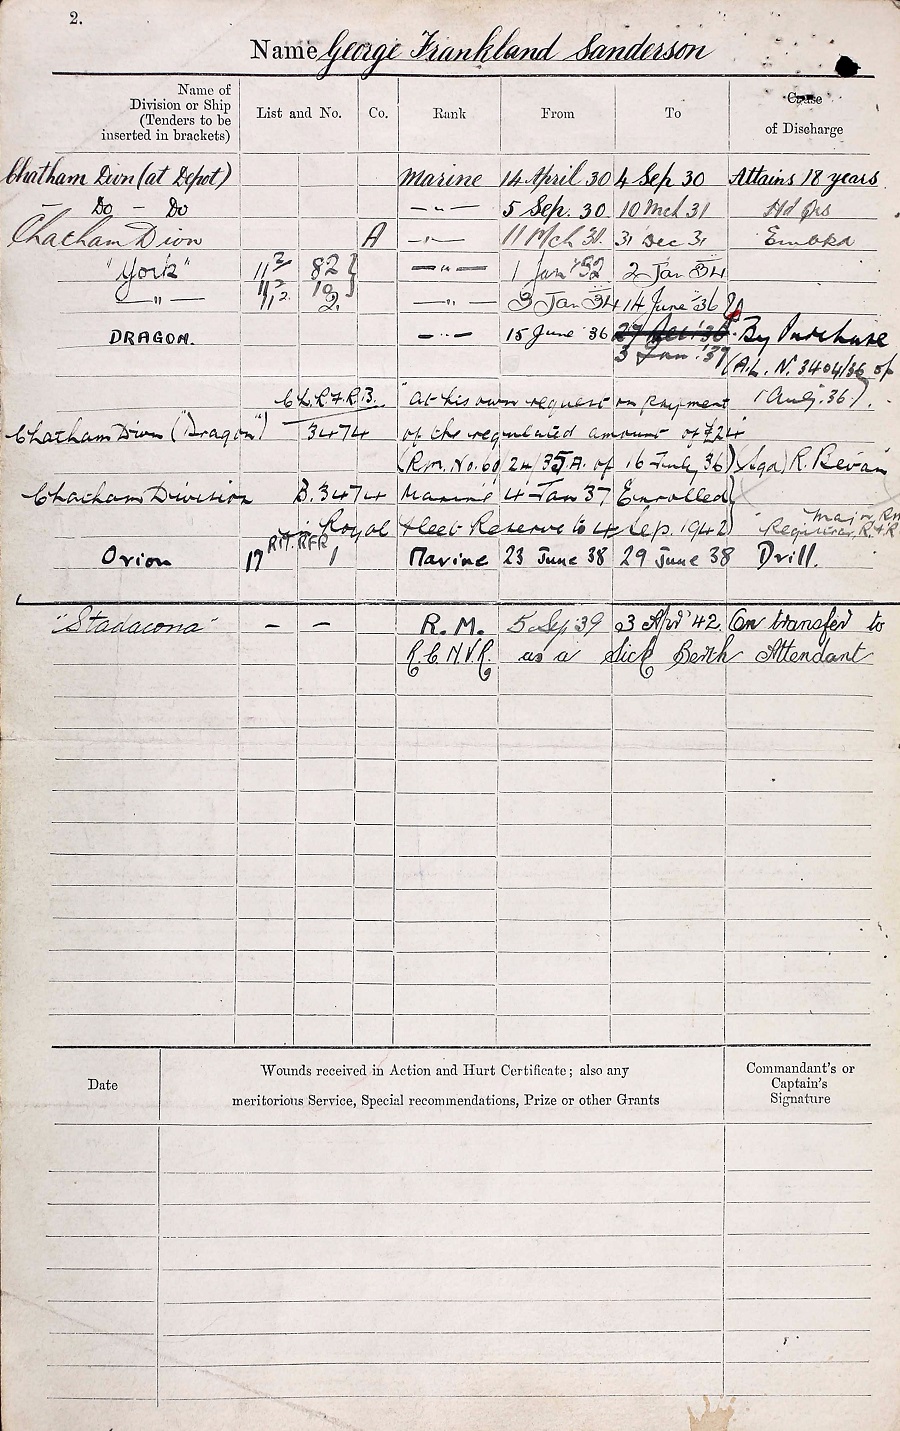 2.
Name George Frankland Sanderson
Name of Division or Ship (Tenders to be inserted in brackets) List and No. Co. Rank From To Cause of Discharge
Chatham Divn (at Depot) Marine 14 April 30 4 Sep 30 Attains 18 years
- Do - Do - " - 5 Sep. 30 10 Mch 31 Hd Qrs
Chatham Divn A - " - 11 Mch 31. 31 Dec 31 Embkd
"York" 11² 82 - " - 1 Jan '32 2 Jan 34
- " - - " - 3 Jan 34 14 June '36
DRAGON. - " - 15 June 36 27 Dec '36 By Purchase
3 Jan. '37 (A.L. N. 3404/36 of
Ch. R.F.R.B. "At his own request on payment Aug. 36).
Chatham Divn ("Dragon") 3474 of the regulated amount of £24"
(Rm. No. 60 24/35A. of 16 July 36) (Sgd) R. Bevan
Chatham Division B. 3474 Marine 4 Jan 37 Enrolled
in Royal Fleet Reserve to 4 Sep. 1942) Major Rm
Registrar R.F.R
Orion 17 RM. RFR 1 Marine 23 June 38 29 June 38 Drill.
"Stadacona" - - R.M. 5 Sep 39 3 Apr '42. On transfer to
R.C.N.V.R. as a Sick Berth Attendant
Date Wounds received in Action and Hurt Certificate; also any meritorious Service, Special recommendations, Prize or other Grants Commandant's or Captain's Signature